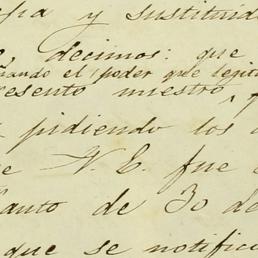 y sustituid
decimos: que
ñando el poder que legit
resento nuestro
pidiendo los
e V. E. fue
auto de 30 de
que se notific